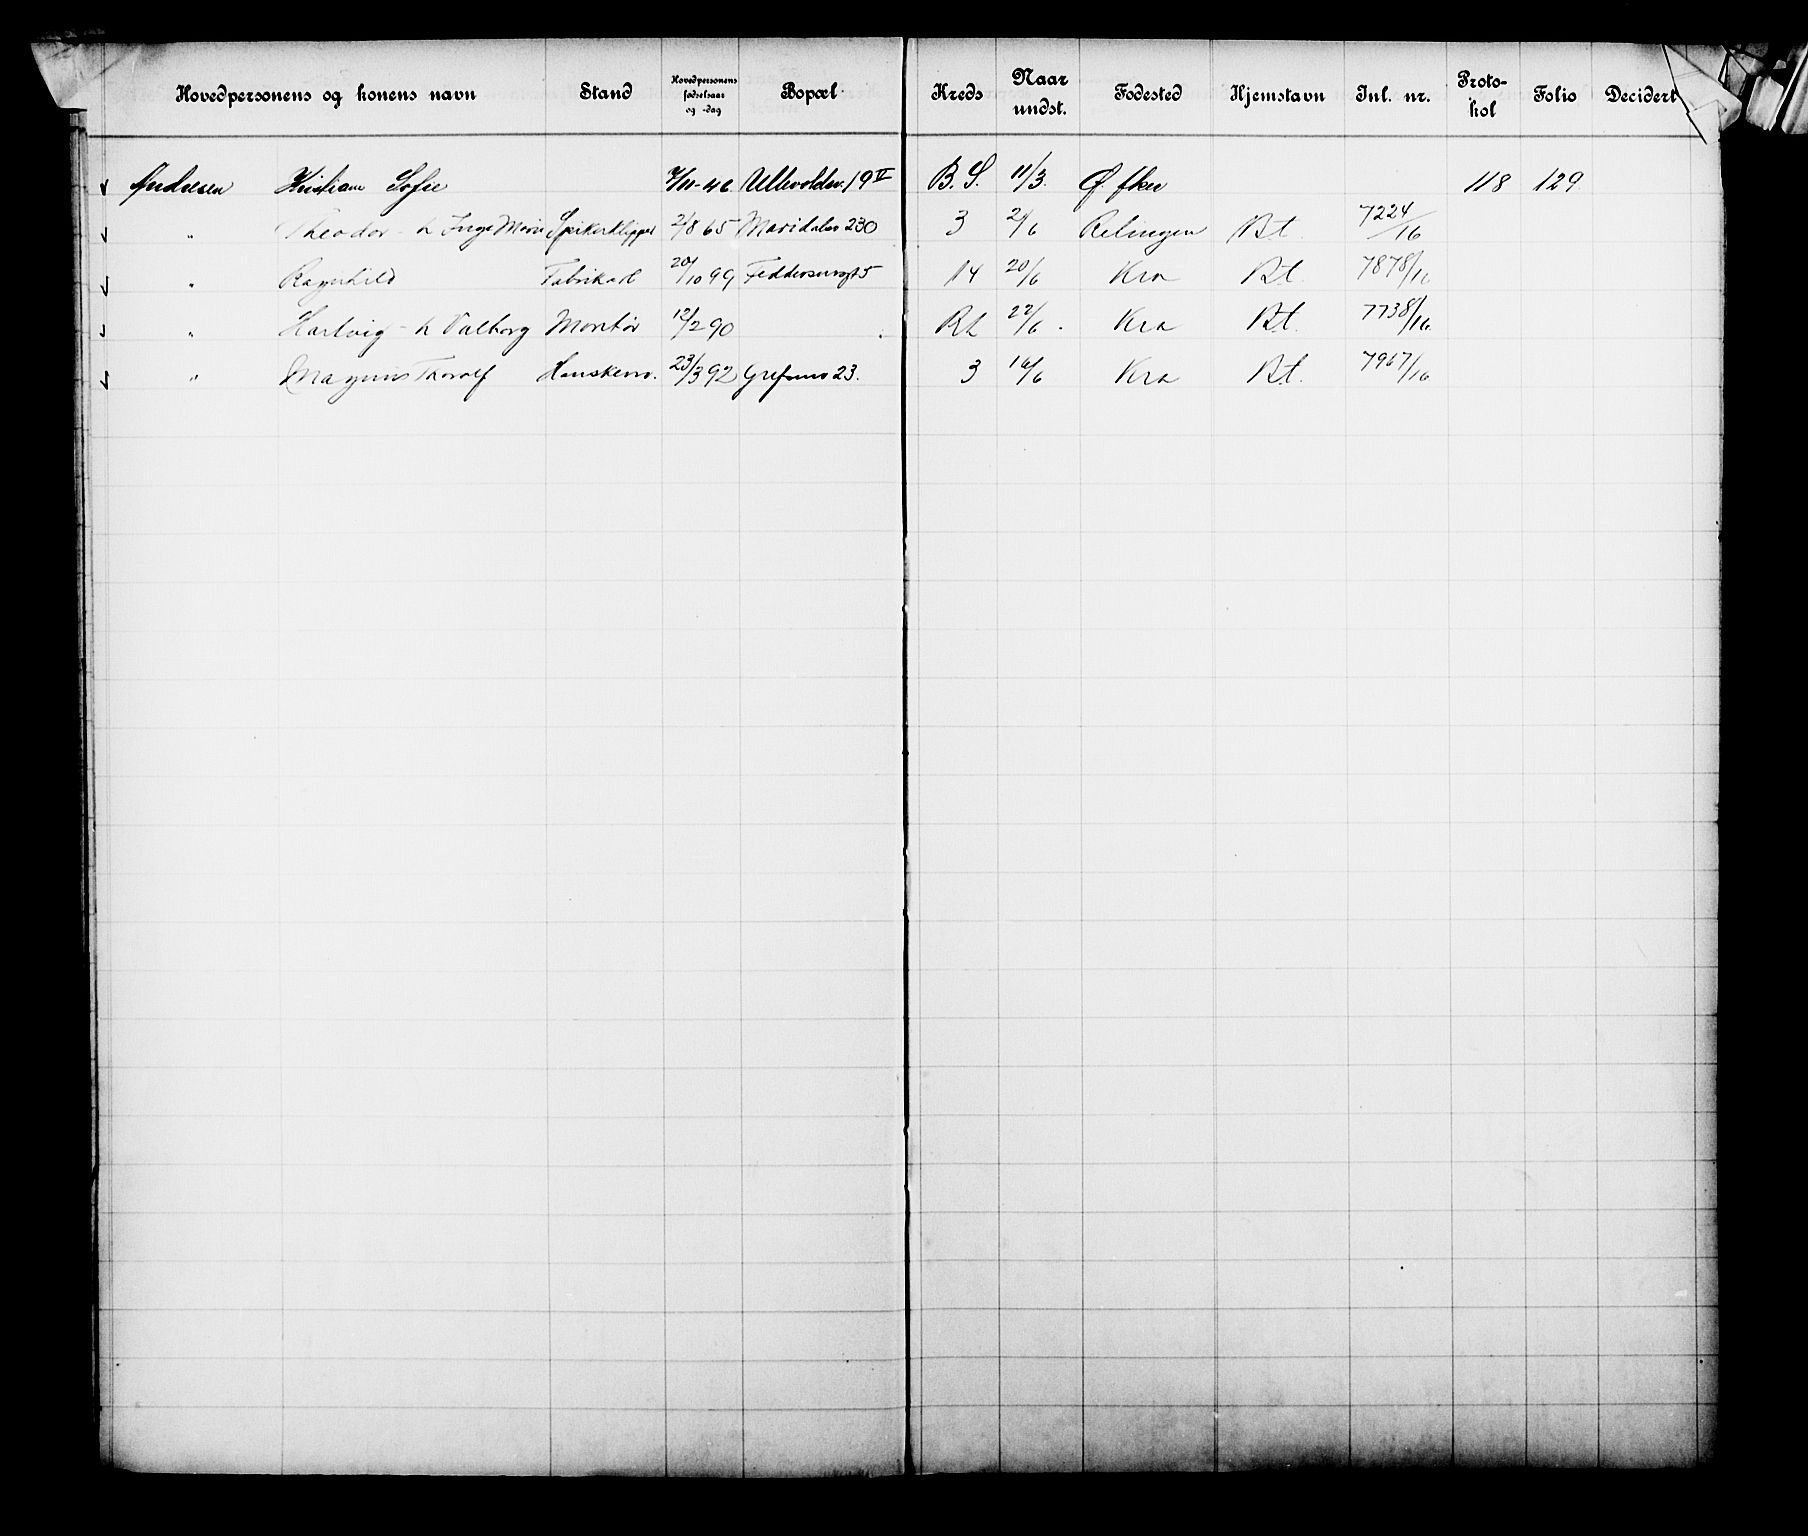 Hovedpersonens og konens navn Stand Hovedpersonens fødselsaar og -dag Bopæl Kreds Naar undst. Fødested Hjemstavn Inl. nr. Proto-kol Folio Decidert
Andresen Kristiane Sofie 7/11-46 Ullevoldsv. 19 II B. S. 11/3. Ø. fker 118 129
" Theodor - h Inga Marie Spikerklipper 2/8 65 Maridalsv 230 3 21/6 Relingen Bt. 7224/16
" Ragnhild Fabrikarb 20/10 99 Feddersensgt 5 14 20/6 Kra Bt. 7878/16
" Hartvig - h Valborg Montør 12/2 90 Rt 22/6. Kra Bt. 7738/16.
" Magnus Thoralf Hanskem. 23/3 92 Grefsenv 23. 3 16/6 Kra Bt. 7967/16